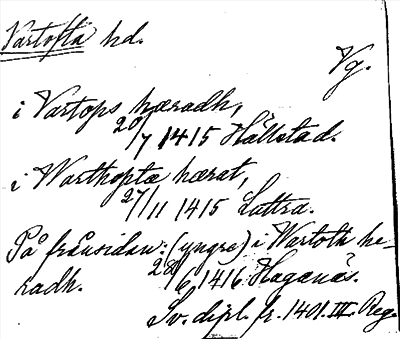 Vartofta hd.
Vg.
i Vartops hæradh,
20/7 1415 Hällstad.
i Warthoptæ hærat,
27/11 1415 Luttra.
På frånsidan: (yngre) i Wartoth he-
radh. 28/6 1416. Haganäs.
Sv. dipl. fr. 1401. III. Reg.